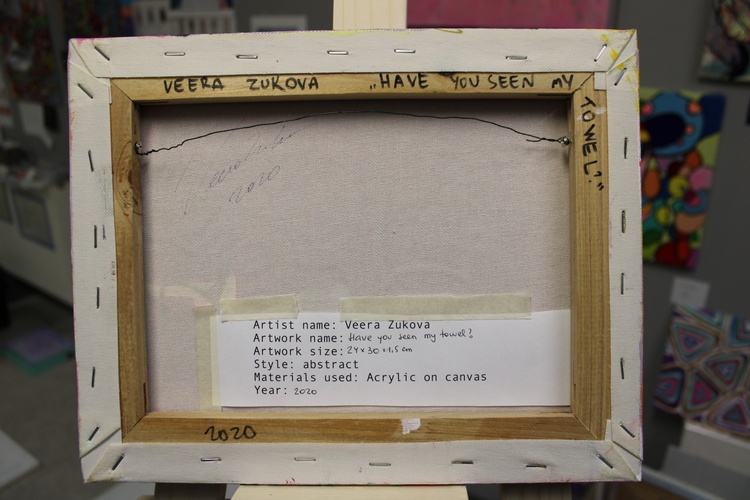 VEERA ZUKOVA „HAVE YOU SEEN MY TOWEL?"
2020
Artist name: Veera Zukova
Artwork name: Have you seen my towel?
Artwork size: 24x30x1,5 cm
Style: abstract
Materials used: Acrylic on canvas
Year: 2020
2020